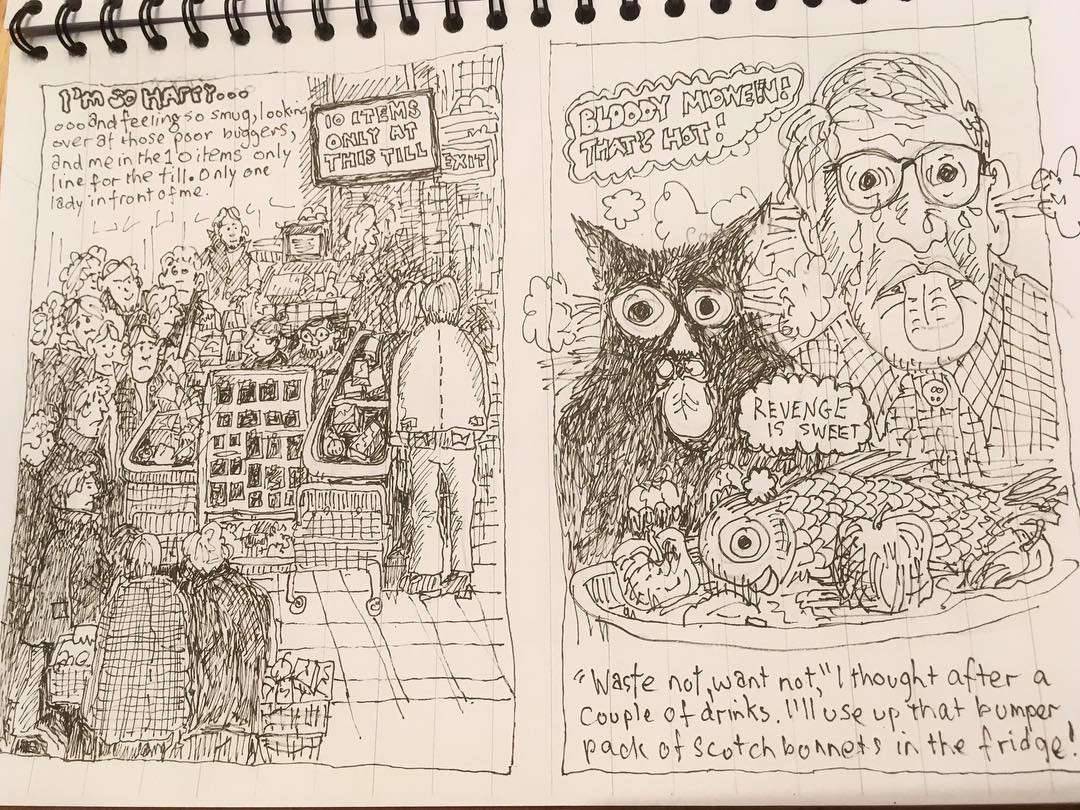 I'M SO HAPPY...
...and feeling so smug, looking
over at those poor buggers,
and me in the 10 items only
line for the till. Only one
lady in front of me.
10 ITEMS
ONLY AT
THIS TILL
EXIT
BLOODY MIOWE!N!
THAT'S HOT!
REVENGE
IS SWEET
"Waste not, want not," I thought after a
couple of drinks. I'll use up that bumper
pack of scotch bonnets in the fridge!